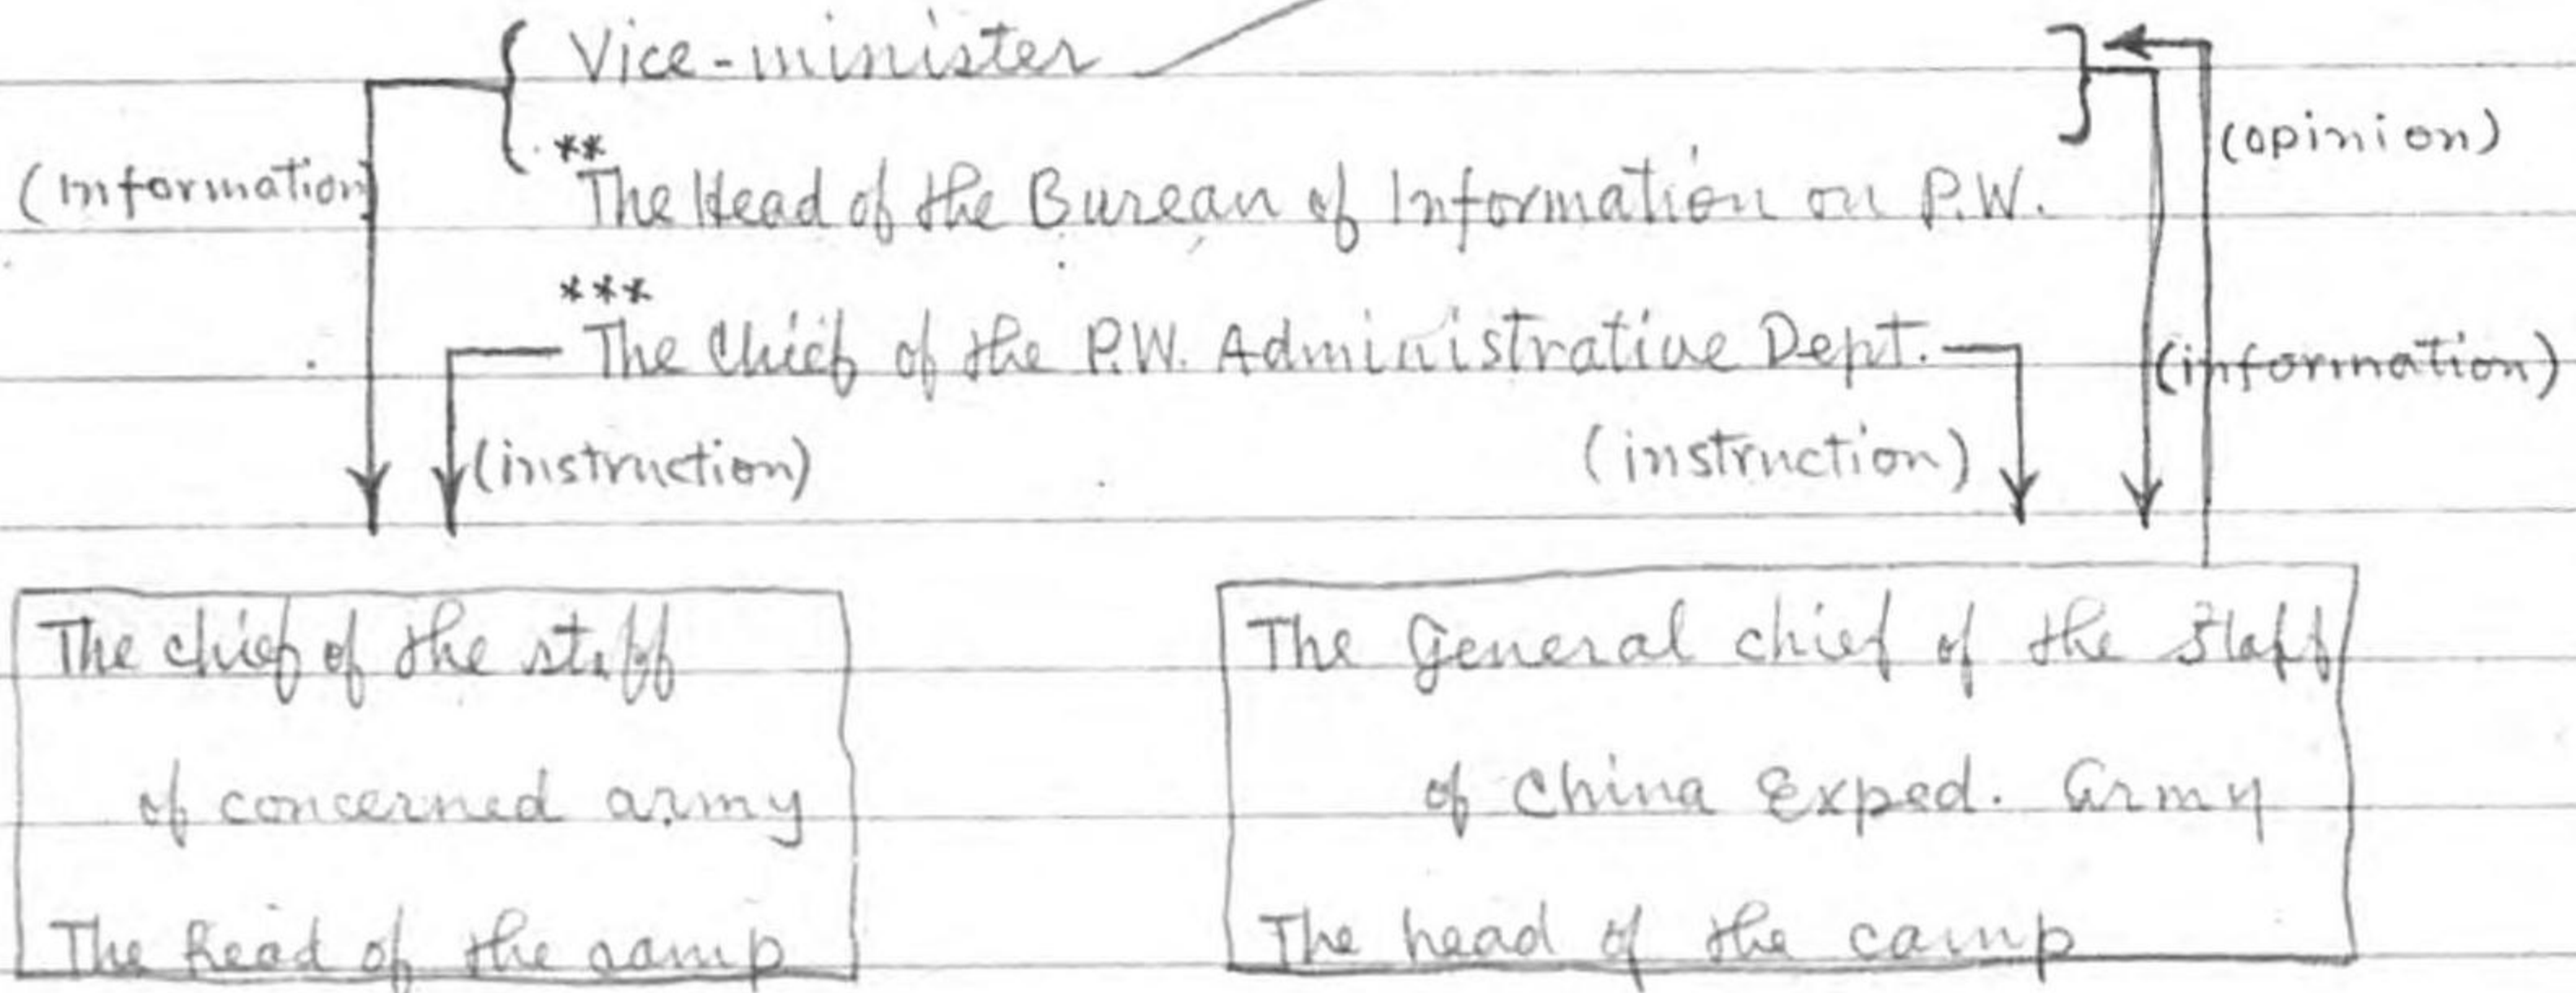 Vice-minister
(opinion)
**
(Information)
The Head of the Bureau of Information on P.W.
***
The Chief of the P.W. Administrative Dept.
(information)
(instruction)
(instruction)
The chief of the staff
of concerned army
The head of the camp
The General chief of the staff
of China Exped. Army
The head of the camp